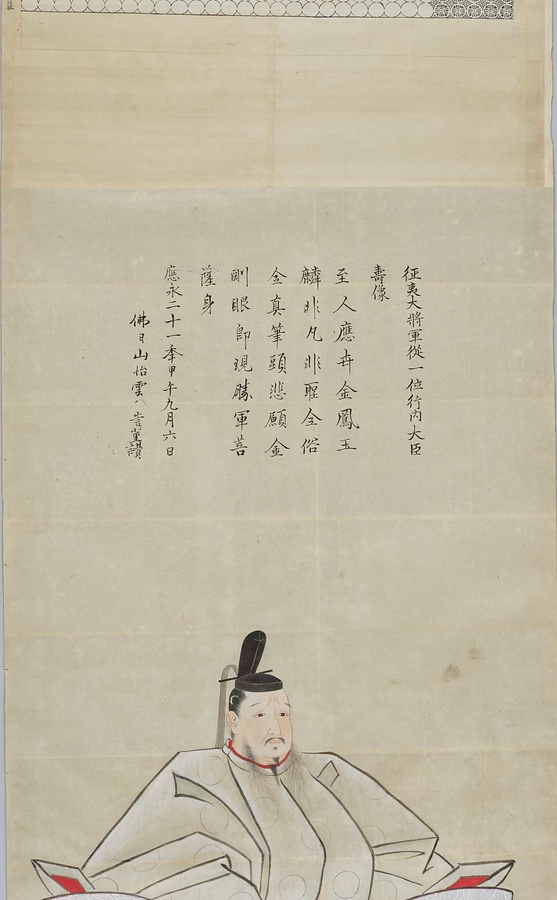 征夷大將軍從一位行内大臣
壽像
至人應世金鳳玉
麟非凡非聖全俗
全真筆頭悲願金
剛眼即現勝軍菩
薩身
應永二十一季甲午九月六日
佛日山怡雲